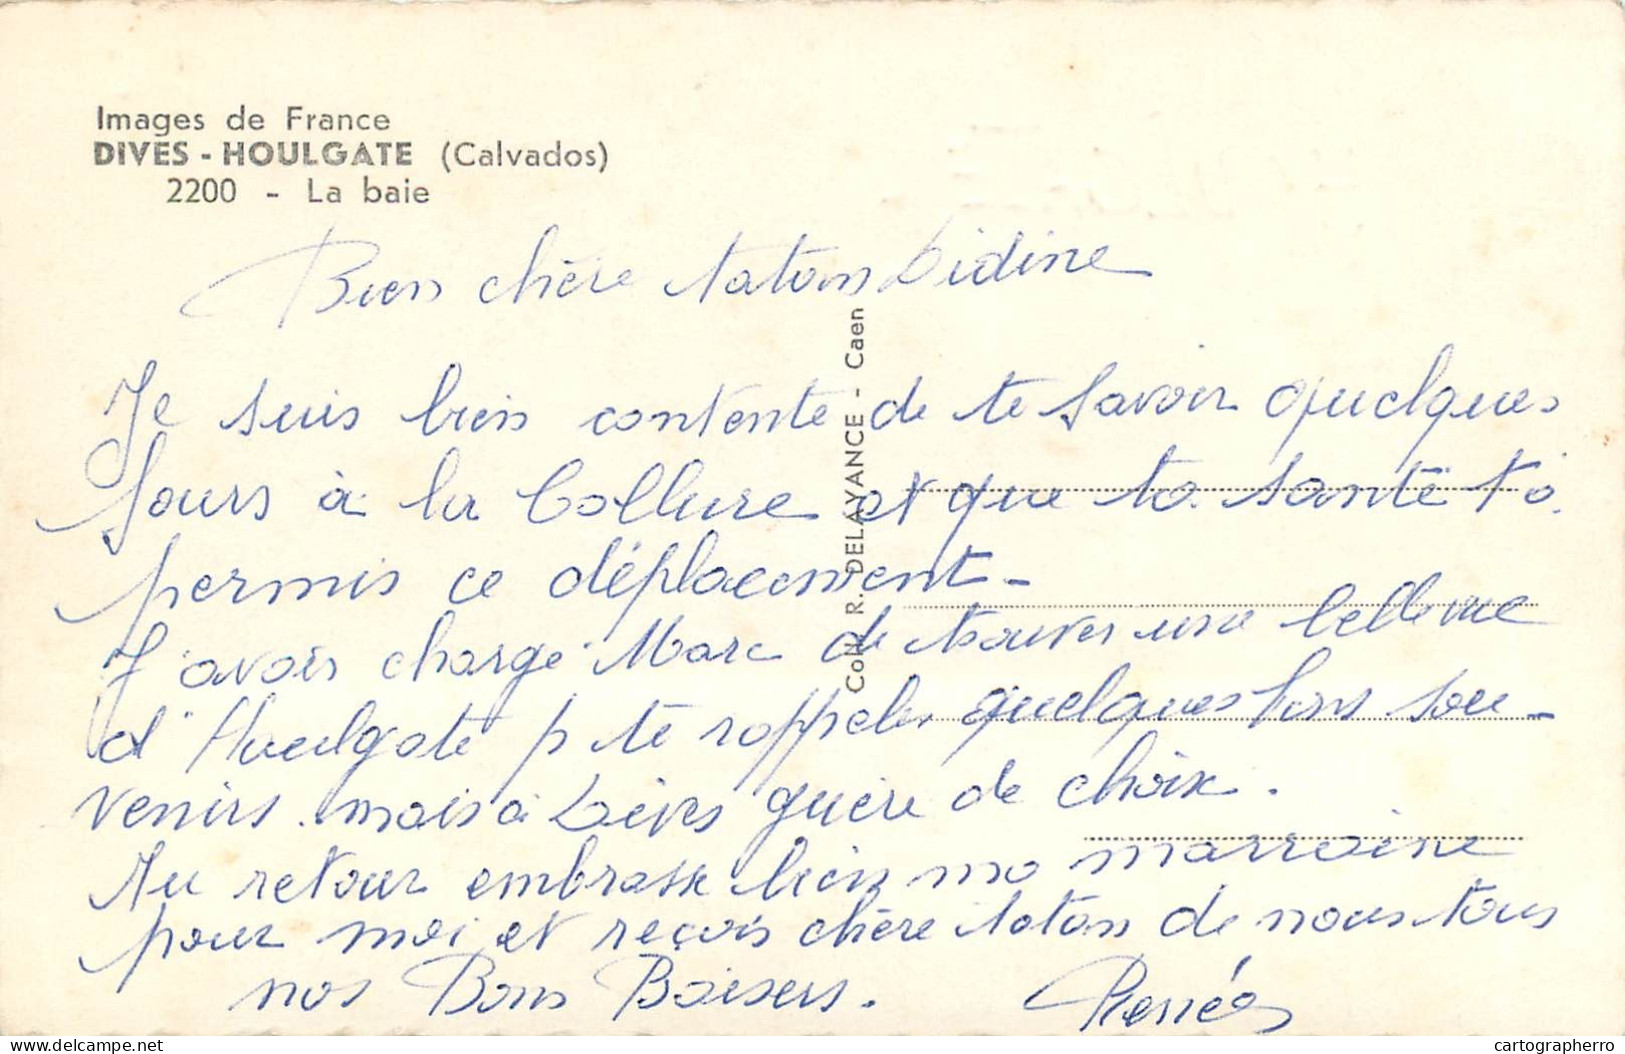 Images de France
DIVES - HOULGATE (Calvados)
2200 - La baie
Bien chère taton Didine
Coll. R. DELAYANCE - Caen
Je suis bien contente de te savoir quelques
jours à la et que ta santé t'a
permis ce déplacement -
J'avais chargé Marc de trouver une belle vue
d'Houlgate p te rappeler quelques bons sou-
venirs. mais à Dives guère de choix.
Au retour embrasse bien ma marraine
pour moi et reçois chère taton de nous tous
nos Bons Baisers. Renée
delcampe.net
cartographerro